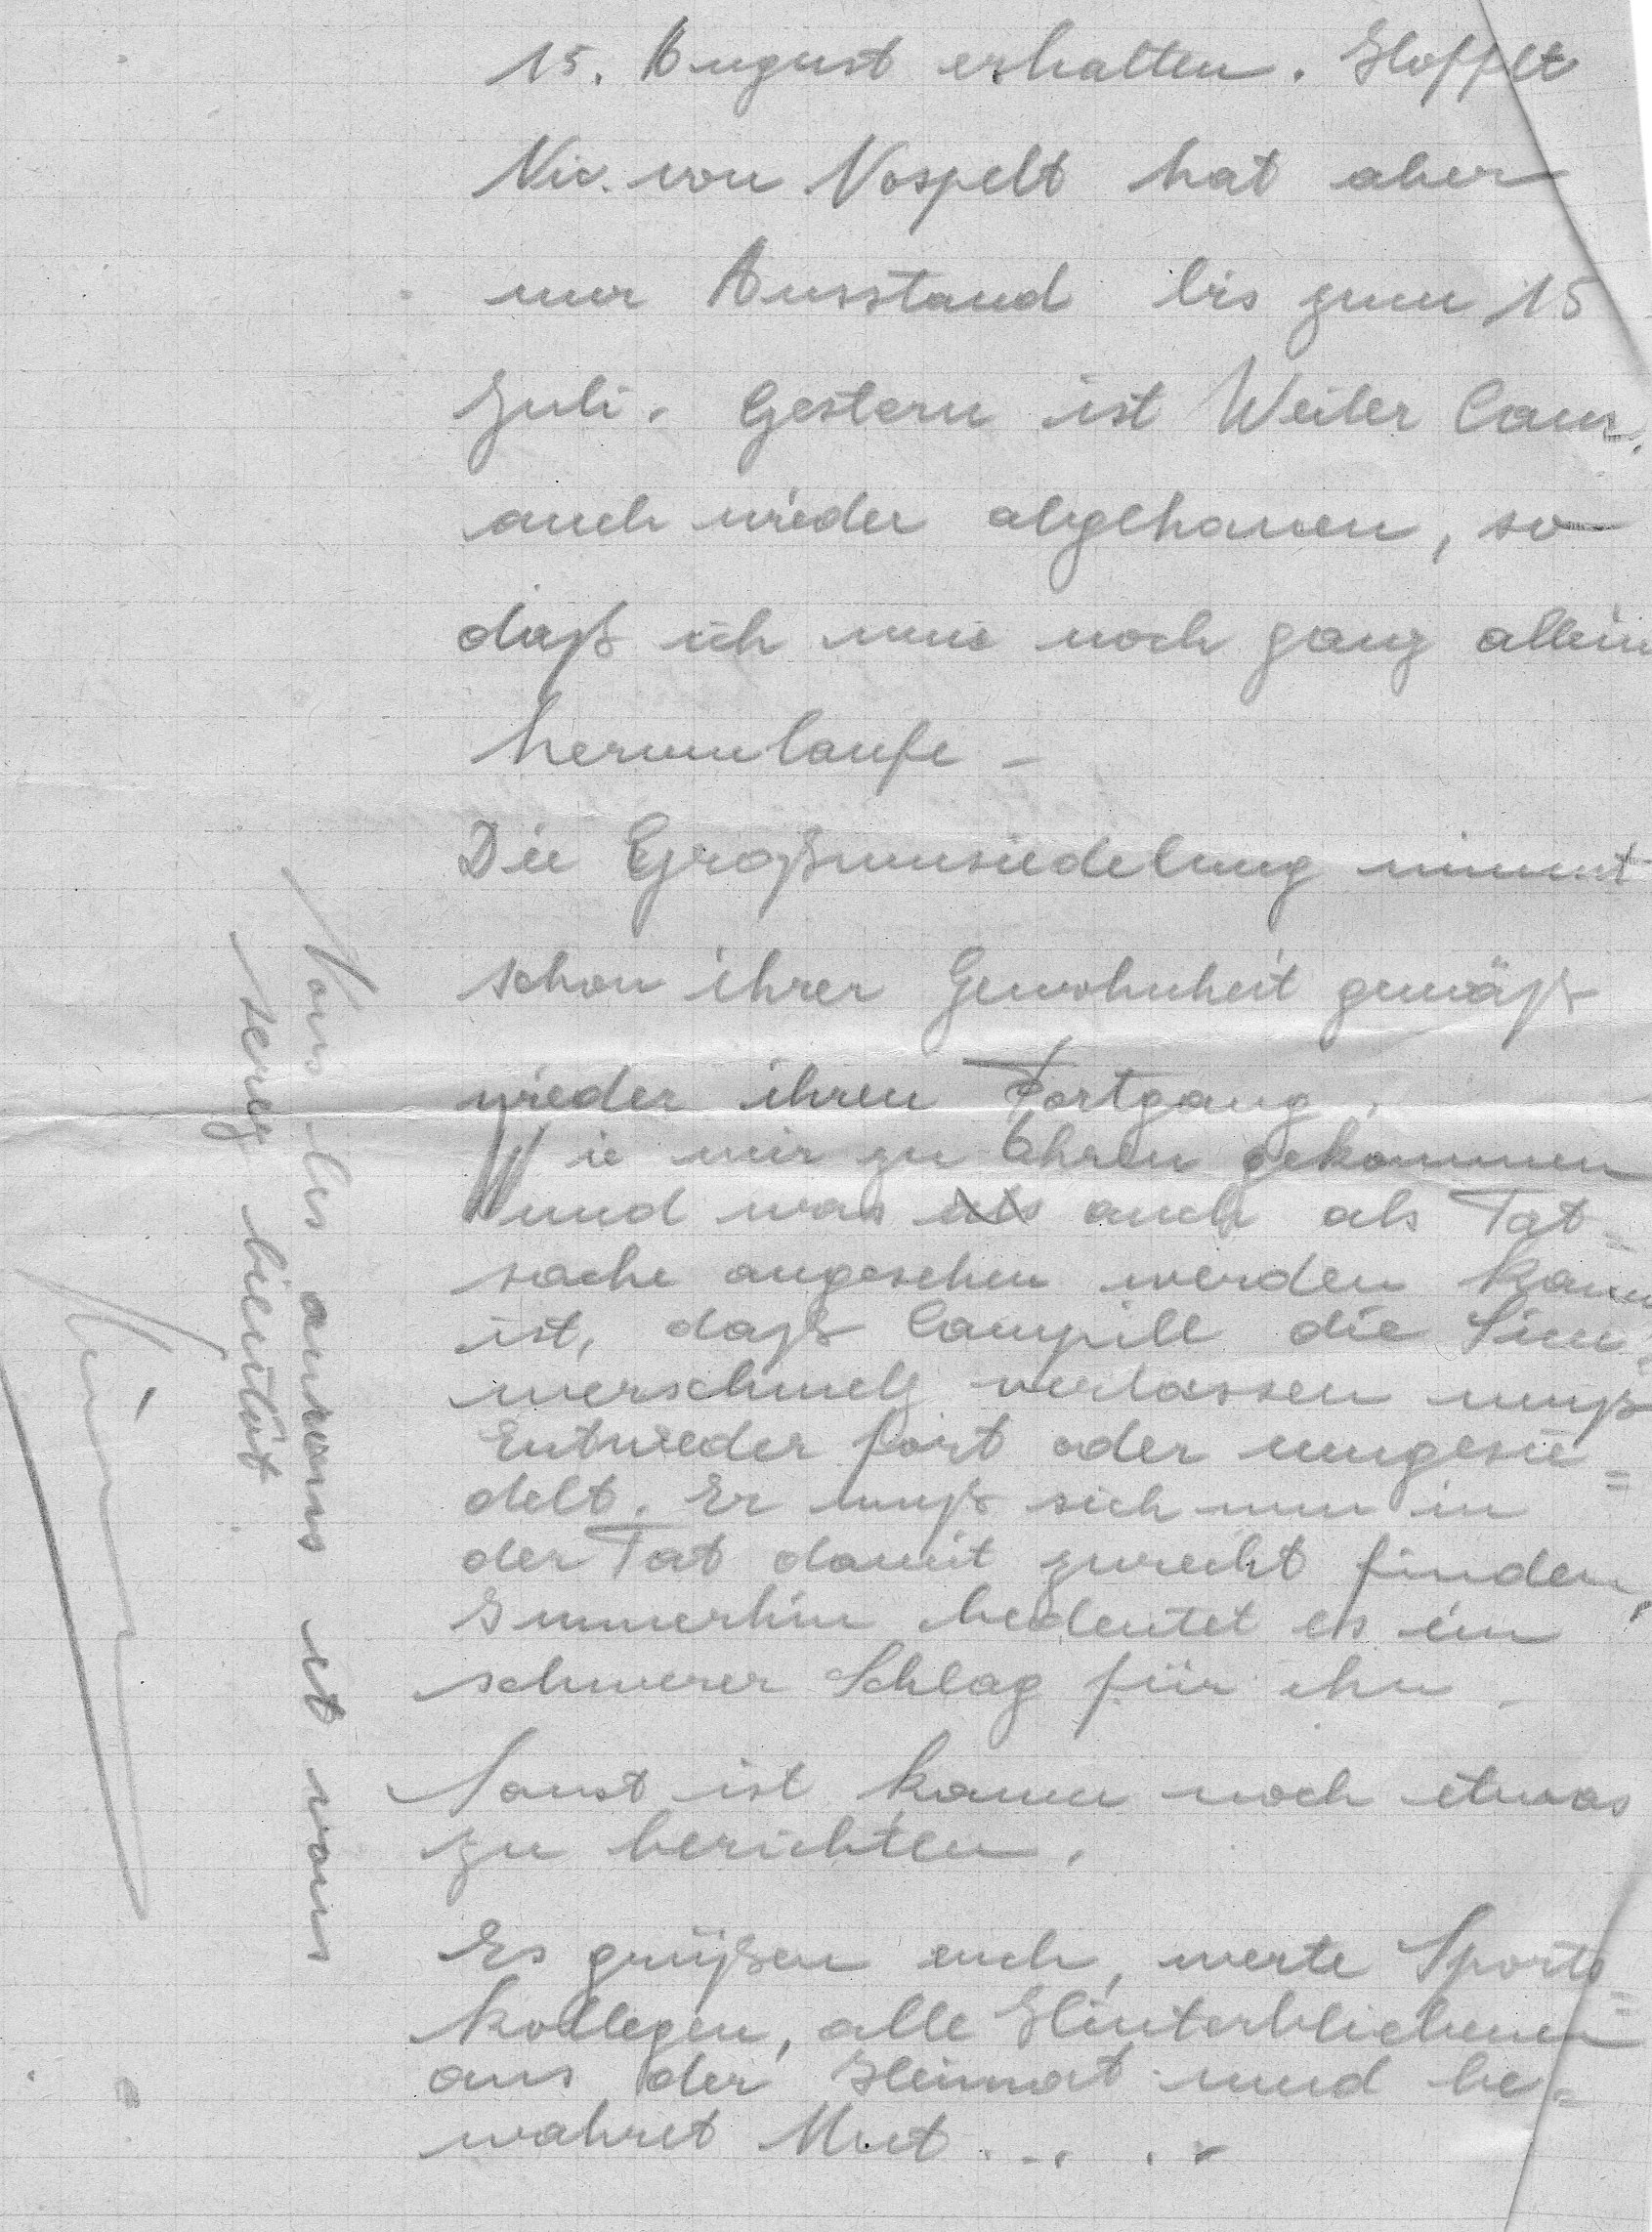 15. August erhalten. Hoffelt
Nic. von Nospelt hat aber
nur Ausstand bis zum 15
Juli. Gestern ist Weiler Cam.
auch wieder abgehauen, so
daß ich nun noch ganz allein
herumlaufe -
Die Großumsiedelung nimmt
schon ihrer Gewohnheit gemäß
wieder ihren Fortgang.
Wie mir zu Ohren gekommen
und was auch als Tat=
sache angesehen werden kann
ist, daß Campill die Sim=
merschmelz verlassen muß
Entweder fort oder umgesie=
delt. Er muß sich nun in
der Tat damit zurecht finden,
Immerhin bedeutet es ein
schwerer Schlag für ihn -
Sonst ist kaum noch etwas
zu berichten.
Es grüßen euch, werte Sports=
kollegen, alle Hinterbliebenen
aus der Heimat und be=
wahret Mut . . . .